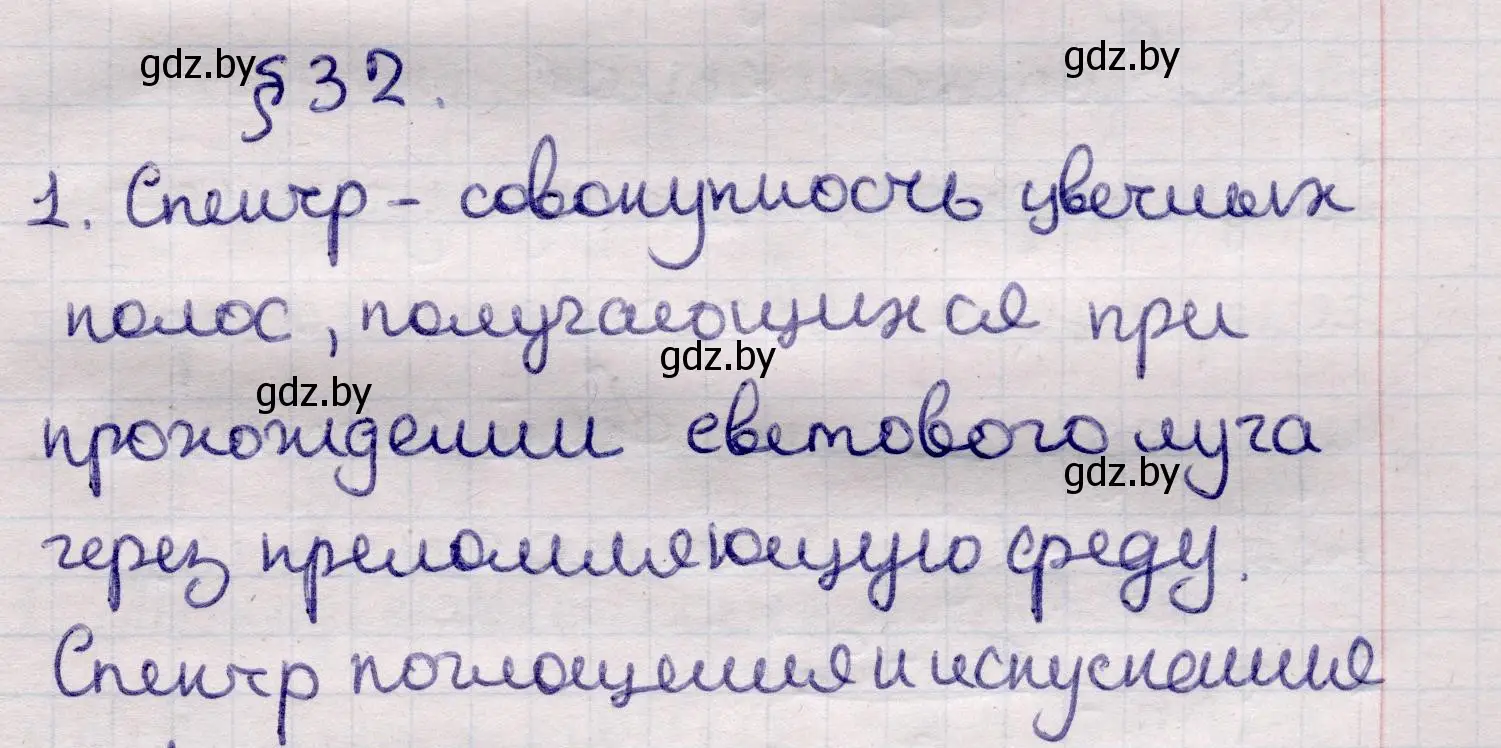 gdz.by §32. gdz.by
1. Спектр - совокупность цветных
полос, получающихся при
gdz.by
gdz.by
прохождении светового луча
gdz.by
через преломляющую среду.
Спектр поглощения и испускания